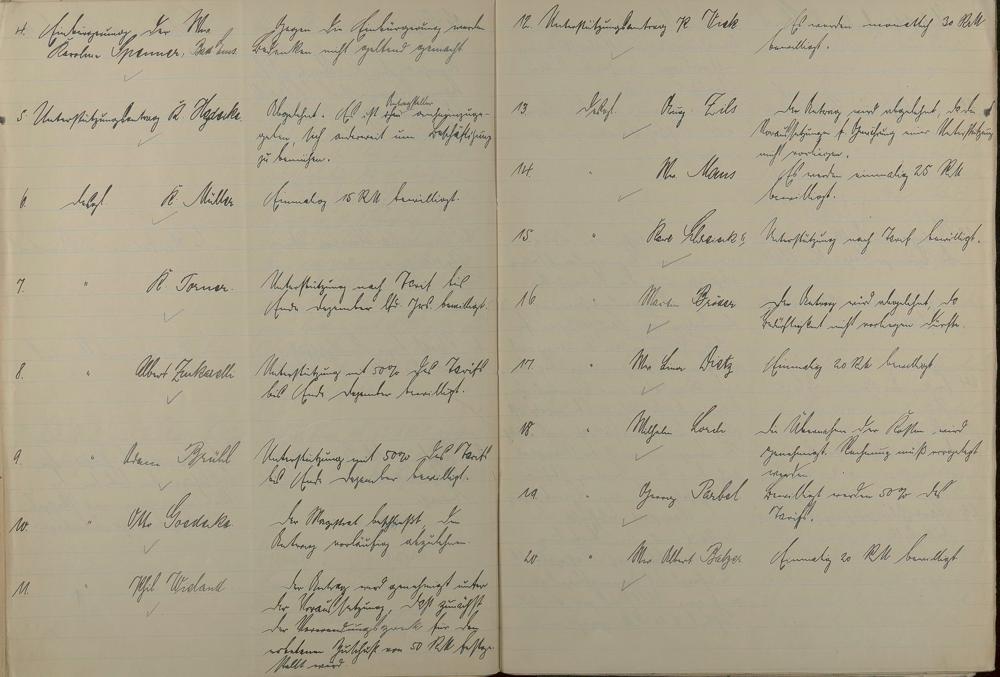 4. Einbürgerung der Wwe
Karoline Spenner, Bad Ems
Gegen die Einbürgerung werden
Bedenken nicht geltend gemacht
5. Unterstützungsantrag K.
Abgelehnt. Es ist Antragsteller anheimzuge-
geben, sich anderweit um Beschäftigung
zu bemühen.
6. desgl K Müller
Einmalig 15 RM bewilligt.
7. " K Torner.
Unterstützung nach Tarif bis
Ende Dezember ds. Jrs. bewilligt.
8. " Albert
Unterstützung mit 50% des Tarifs
bis Ende Dezember bewilligt.
9. " Adam Brühl
Unterstützung mit 50% des Tarifs
bis Ende Dezember bewilligt.
10. " Otto Goedecke
Der Magistrat beschließt, den
Antrag vorläufig abzulehnen.
11. " Phil Wieland
Der Antrag wird genehmigt unter
der Voraussetzung, daß zunächst
der Verwendungszweck für den
erbetenen Zuschuß von 50 RM festge-
stellt wird.
12. Unterstützungsantrag K
Es werden monatlich 30 RM
bewilligt.
13. desgl. Aug. Zils
Der Antrag wird abgelehnt, da die
Voraussetzungen f. Gewährung einer Unterstützung
nicht vorliegen.
14 " Ww Maus
Es werden einmalig 25 RM
bewilligt.
15 " Karl
Unterstützung nach Tarif bewilligt.
16 " Martin
Der Antrag wird abgelehnt, da
Bedürftigkeit nicht vorliegen dürfte.
17. " Ww Dietz
Einmalig 20 RM bewilligt
18. " Wilhelm Lorch
Die Übernahme der Kosten wird
genehmigt. Rechnung muß vorgelegt
werden
19. " Georg
Bewilligt werden 50% des
Tarifs.
20. " Ww Albert Balzer
Einmalig 20 RM bewilligt